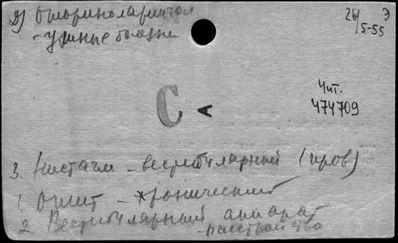 9) Оториноларингол
- ушные болезни
26/5-55 Э
Чит.
474709
С <
3. Нистагм - вестибулярный (пров)
1. Отит - хронический
2 Вестибулярный аппарат
- расстройства